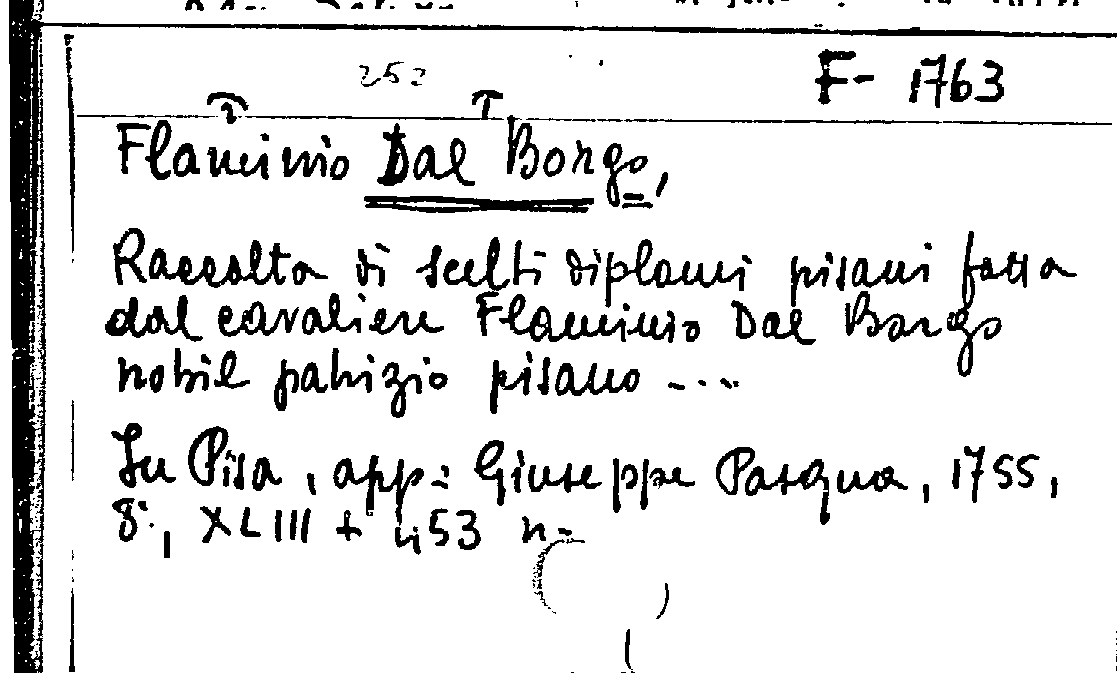 252
F- 1763
Flaminio Dal Borgo,
Raccolta di scelti diplomi pisani fatta
dal cavaliere Flaminio Dal Borgo
nobil patrizio pisano ....
In Pisa, app: Giuseppe Pasqua, 1755,
8°, XLIII + 453 n.